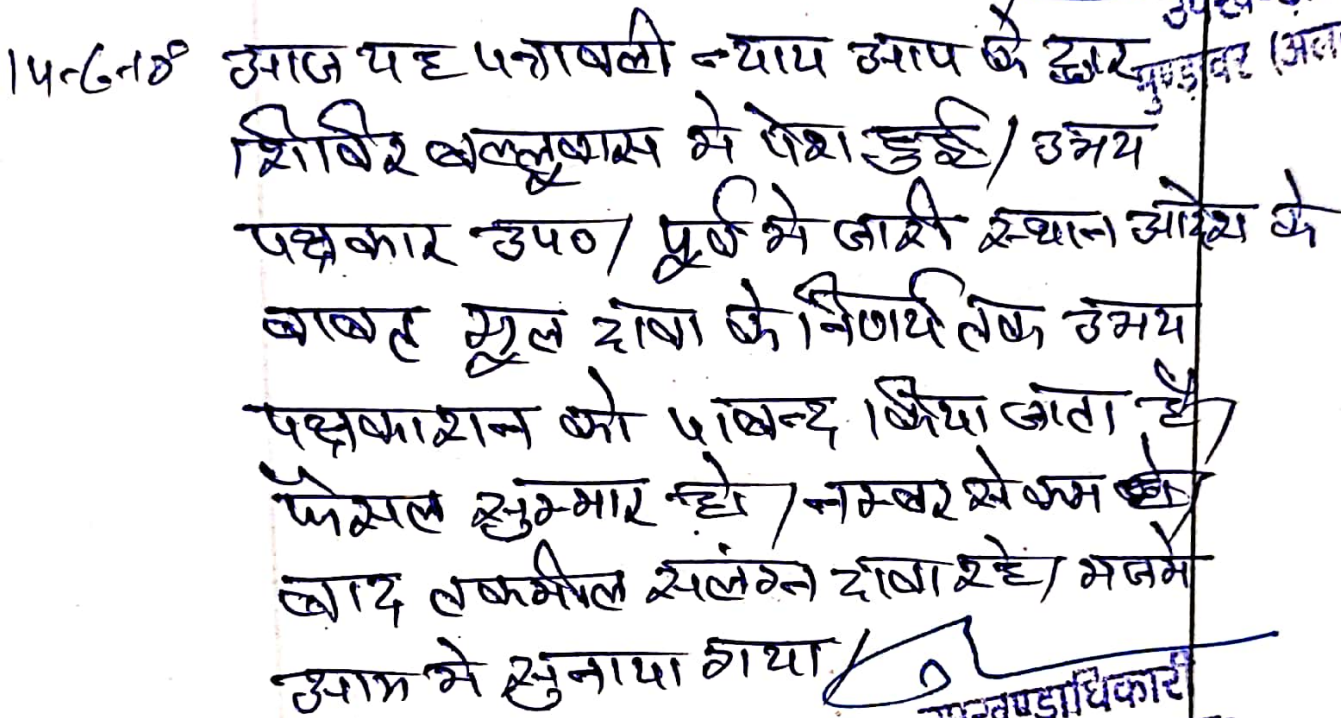 आज यह पत्रावली न्याय आप के द्वार
शिविर बल्लूबास मे पेश हुई/ उभय
पक्षकार उप०/ पूर्व मे जारी स्थगन आदेश के
बाबत मूल दावा के निर्णय तक उभय
पक्षकारान को पाबन्द किया जाता है/
फैसल सुम्मार हो/ नम्बर से कम हो/
बाद तकमील सलंग्न दावा रहे/ मजमे
आम मे सुनाया गया/